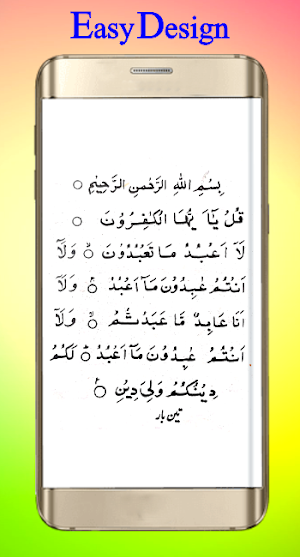 Easy Design
بِسْمِ اللهِ الرَّحْمٰنِ الرَّحِيْمِ ○
قُلْ يٰٓاَ يُّهَا الْكٰفِرُوْنَ ○
لَآ اَعْبُدُ مَا تَعْبُدُوْنَ ○ وَلَآ
اَنْتُمْ عٰبِدُوْنَ مَآ اَعْبُدُ ○ وَلَآ
اَنَا عَابِدٌ مَّا عَبَدْتُّمْ ○ وَلَآ
اَنْتُمْ عٰبِدُوْنَ مَآ اَعْبُدُ ○ لَكُمْ
دِيْنُكُمْ وَلِيَ دِيْنِ ○
تین بار